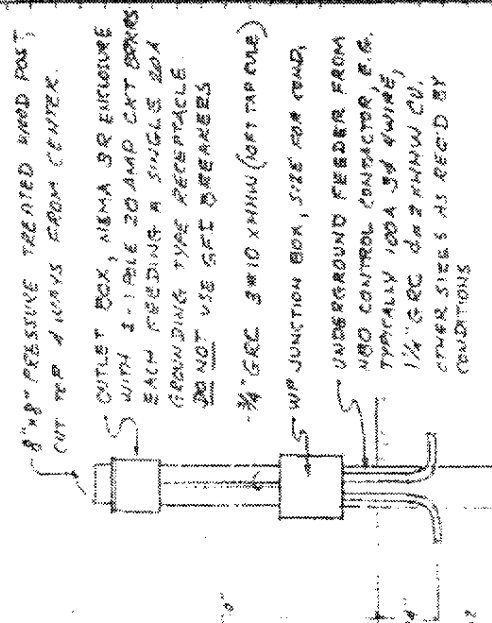 8"x8" PRESSURE TREATED WOOD POST,
CUT TOP 4 WAYS FROM CENTER.
OUTLET BOX, NEMA 3R ENCLOSURE
WITH 3-1 POLE 20 AMP CKT BRKRS
EACH FEEDING A SINGLE 20A
GROUNDING TYPE RECEPTACLE.
DO NOT USE GFI BREAKERS
3/4" GRC 3#10 XHHW (10FT TAP RULE)
WP JUNCTION BOX, SIZE FOR COND.
UNDERGROUND FEEDER FROM
HBO CONTROL CONTACTOR, E.G.
TYPICALLY 100A 3Ø 4WIRE,
1 1/4" GRC 4#2 XHHW CU.
OTHER SIZES AS REQ'D BY
CONDITIONS